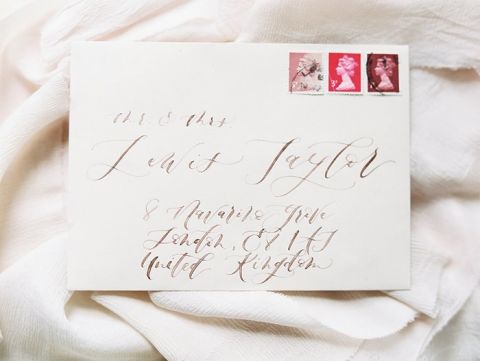 Mr. & Mrs.
Lewis Taylor
8 Navarino Grove
London, E8 1AJ
United Kingdom